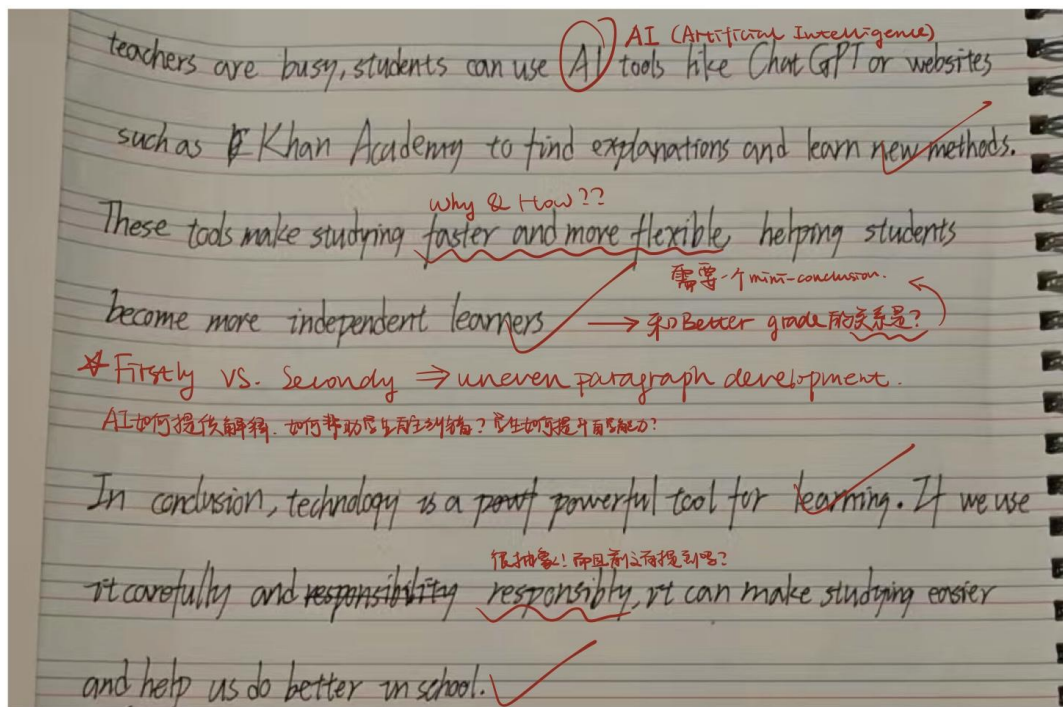 AI (Artificial Intelligence)
teachers are busy, students can use AI tools like ChatGPT or websites
such as Khan Academy to find explanations and learn new methods.
Why & How??
These tools make studying faster and more flexible, helping students
需要一个mini-conclusion.
become more independent learners → 和Better grade的关系是?
Firstly vs. Secondy ⇒ uneven paragraph development.
AI如何提供解释. 如何帮助学生自主纠错? 学生如何提升自学能力?
In conclusion, technology is a powt powerful tool for learning. If we use
很抽象! 而且前文有提到吗?
it carefully and responsibility responsibly, it can make studying easier
and help us do better in school.